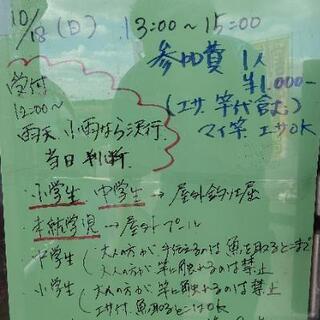 10/18(日) 13:00〜15:00
参加費 1人
¥1.000-
(エサ、竿代含む)
マイ竿 エサOK
受付
12:00〜
雨天 小雨なら決行
当日判断
・小学生 中学生→屋外釣り堀
・未就学児→屋外プール
中学生(大人の方が手伝えるのは魚を取るときまで
大人の方が竿に触れるのは禁止
小学生(大人の方が竿に触れるのは禁止
エサ付、魚取るときはOK